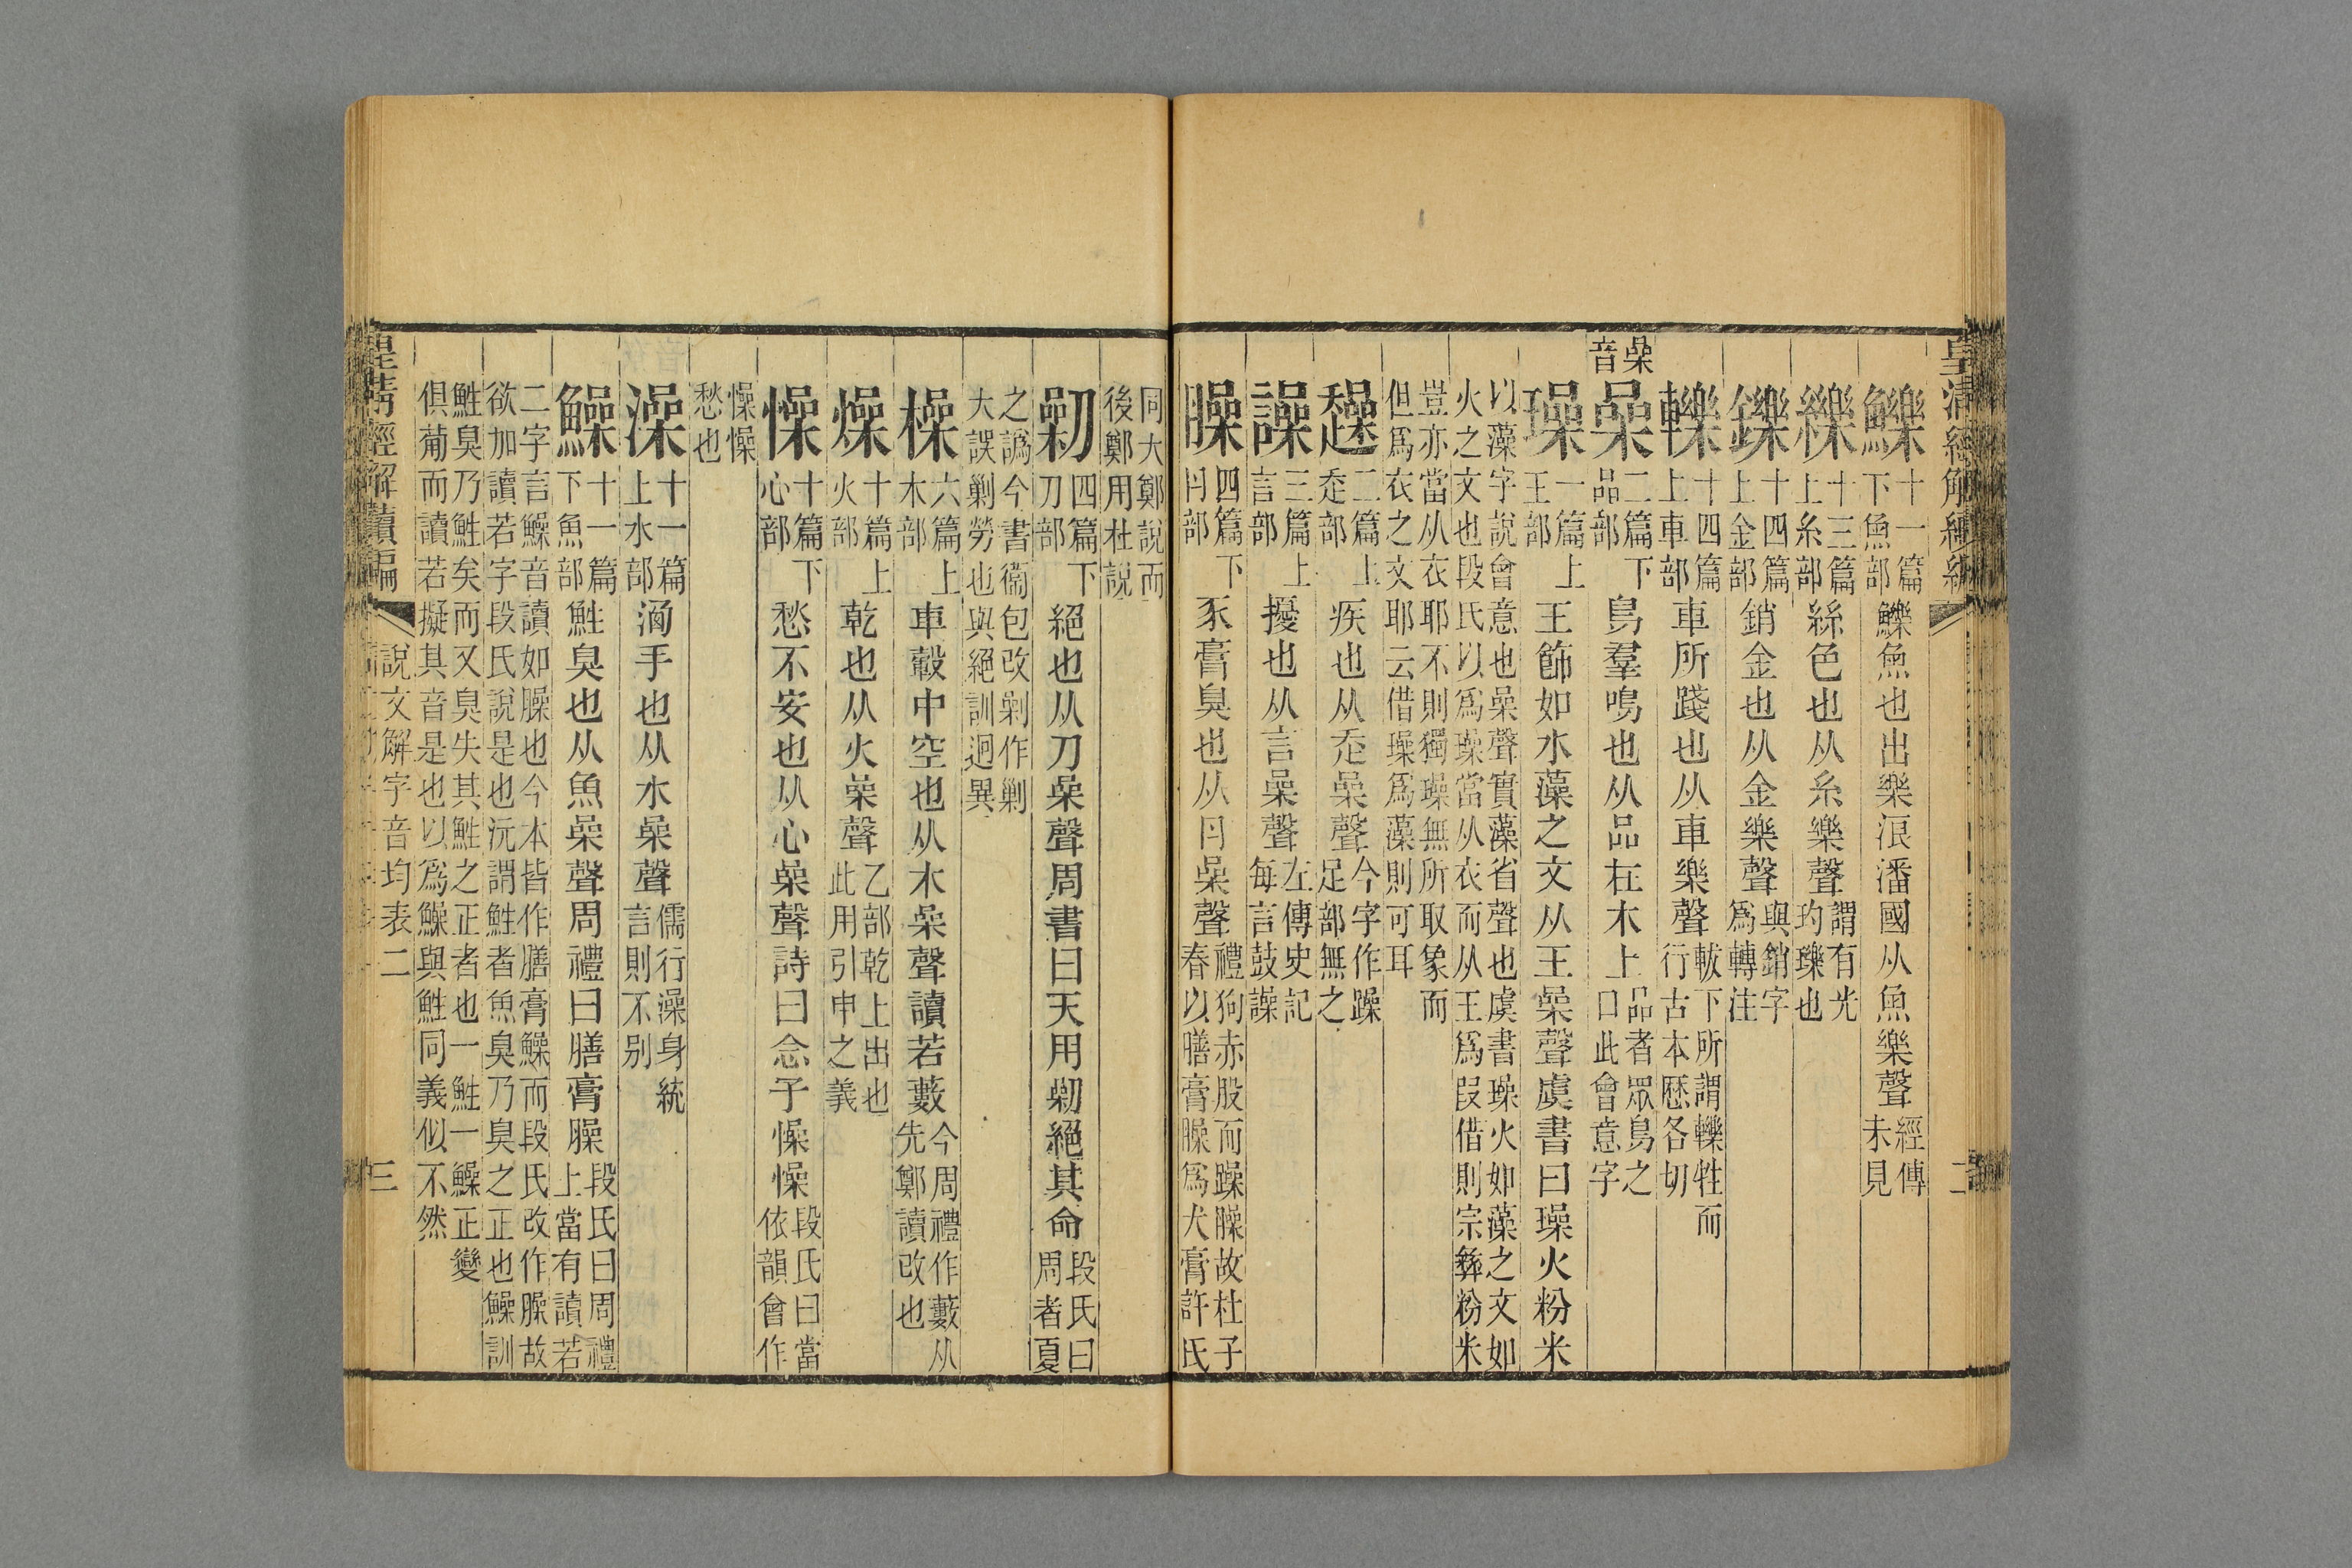 皇清經解續編
鱳十一篇下魚部鱳魚也出樂浪潘國从魚樂聲經傳未見
纅十三篇上糸部絲色也从糸樂聲謂有光玓瓅也
鑠十四篇上金部銷金也从金樂聲與銷字爲轉注
轢十四篇上車部車所踐也从車樂聲軷下所謂轢牲而行古本歷各切
喿音
喿二篇下品部鳥羣鳴也从品在木上品者眾鳥之口此會意字
璪一篇上王部王飾如水藻之文从王喿聲虞書曰璪火粉米
以藻字說會意也喿聲實藻省聲也虞書璪火如藻之文如
火之文也段氏以爲璪當从衣而从王爲叚借則宗彝粉米
豈亦當从衣耶不則獨璪無所取象而
但爲衣之文耶云借璪爲藻則可耳
趮二篇上走部疾也从走喿聲今字作躁足部無之
譟三篇上言部擾也从言喿聲左傳史記每言鼓譟
臊四篇下肉部豕膏臭也从肉喿聲禮狗赤股而躁臊故杜子春以膳膏臊爲犬膏許氏
同大鄭說而後鄭用杜說
劋四篇下刀部絕也从刀喿聲周書曰天用劋絕其命段氏曰周者夏
之譌今書衞包改剿作勦
大誤勦勞也與絕訓迥異
橾六篇上木部車轂中空也从木喿聲讀若藪今周禮作藪从先鄭讀改也
燥十篇上火部乾也从火喿聲乙部乾上出也此用引申之義
懆十篇下心部愁不安也从心喿聲詩曰念子懆懆段氏曰當依韻會作
懆懆愁也
澡十一篇上水部洒手也从水喿聲儒行澡身統言則不别
鱢十一篇下魚部鮏臭也从魚喿聲周禮曰膳膏臊段氏曰周禮上當有讀若
二字言鱢音讀如臊也今本皆作膳膏鱢而段氏改作臊故
欲加讀若字段氏說是也沅謂鮏者魚臭乃臭之正也鱢訓
鮏臭乃鮏矣而又臭失其鮏之正者也一鮏一鱢正變
俱葡而讀若擬其音是也以爲鱢與鮏同義似不然
皇淸經解續編
說文解字音均表二
三